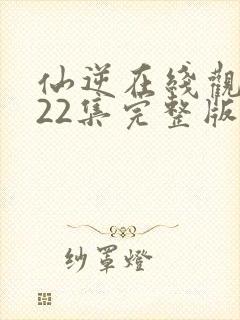 仙逆在线觀
22集完整版
纱罩燈